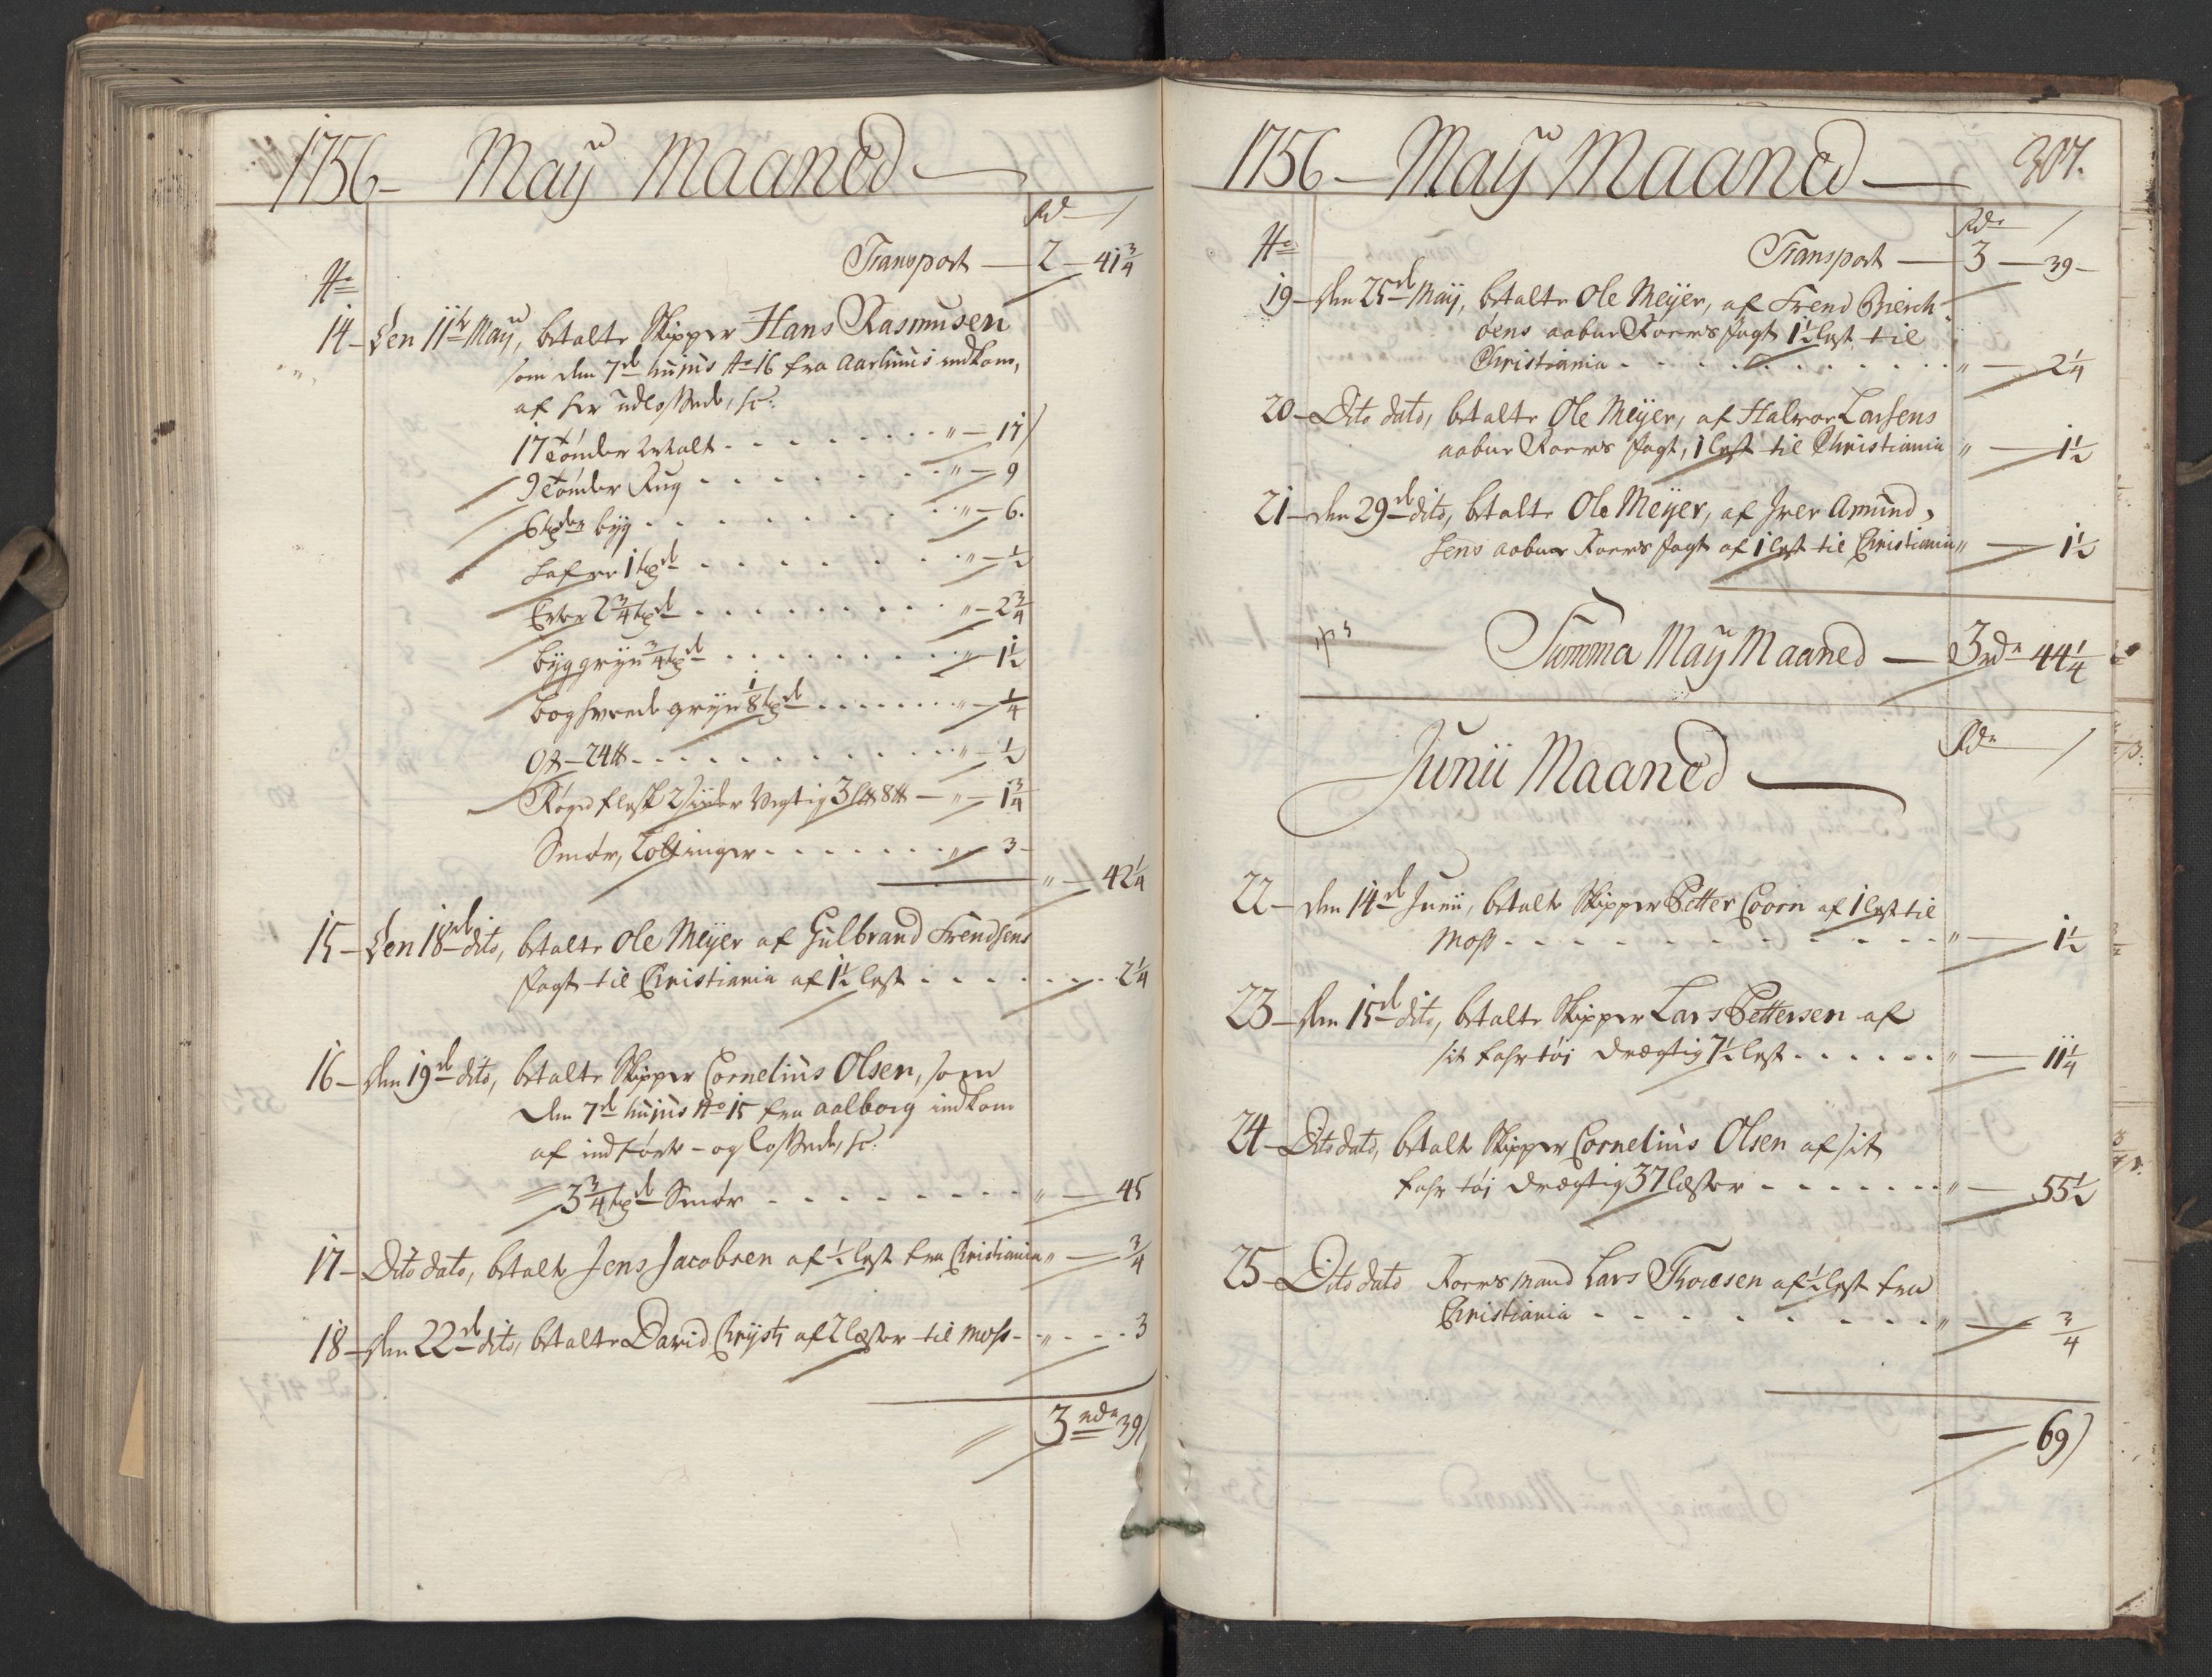 1756 – Maÿ Maaned
Rd
No
Transport – 2 – 41 3/4
14 – Den 11te Maÿ, betalte Skipper Hans Rasmusen
som den 7de hujus No 16 fra Aarhuus indkom,
af her udlossede, sc:
17 Tønder Malt - - - " – 17
9 Tønder Rug - - - " – 9
6 tdr byg - - - " – 6.
Hafre 1 td - - - " – 1/2
Erter 2 3/4 td - - - " – 2 3/4
byggryn 3/4 td - - - " – 1 1/2
boghvedegryn 1/8 td - - - " – 1/4
Ost – 24 ℔ - - - " – 1/2
Røged flesk 2 sider Vegtig 3 L℔ 8 ℔ – " – 1 3/4
Smør, 2 ottinger - - - " – 3 –
" – 42 1/4
15 – Den 18de dito, betalte Ole Meÿer af Gulbrand Trendsens
Jagt til Christiania af 1 1/2 lest - - - 2 1/4
16 – den 19de dito, betalte Skipper Cornelius Olsen, som
den 7de hujus No 15 fra Aalborg indkom
af indførte – og lossede, sc:
3 3/4 td Smør - - - " – 45
17 – Dito dato, betalte Jens Jacobsen af 1/2 lest fra Christiania " – 3/4
18 – den 22de dito, betalte David Chrÿsti af 2 læster til Moss - " - - 3
3 rdr 39
1756 – Maÿ Maaned – 307.
Rdr
No
Transport – 3 – 39 –
19 – den 25de Maÿ, betalte Ole Meÿer, af Trend Bierch-
øens aabne Roers Jagt 1 1/2 lest til
Christiania - - - " – 2 1/4
20 – Dito dato, betalte Ole Meÿer, af Halvor Larsens
aabne Roers Jagt, 1 lest til Christiania " – 1 1/2
21 – den 29de dito, betalte Ole Meÿer, af Iver Amund-
sens aabne Roers Jagt af 1 lest til Christiania " – 1 1/2
Summa Maÿ Maaned – 3 rdr 44 1/4
Junii Maaned
Rdr
22 – den 14de Junii, betalte Skipper Petter Coorn af 1 lest til
Moss - - - " – 1 1/2
23 – den 15de dito, betalte Skipper Lars Pettersen af
sit fahrtøi drægtig 7 1/2 lest - - - " – 11 1/4
24 – Dito dato, betalte Skipper Cornelius Olsen af sit
fahrtøi drægtig 37 læster - - - " – 55 1/2
25 – Dito dato Roersmand Lars Thoresen af 1/2 lest fra
Christiania - - - " – 3/4
– 69